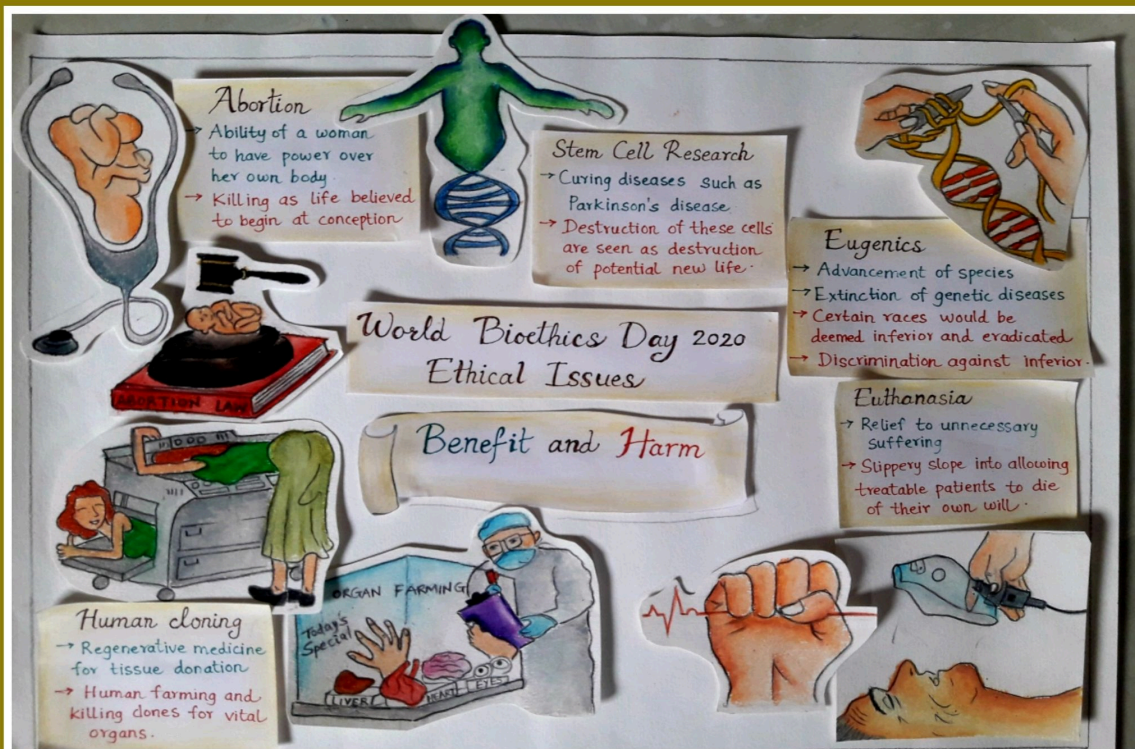 Abortion
→ Ability of a woman
to have power over
her own body.
→ Killing as life believed
to begin at conception
Stem Cell Research
→ Curing diseases such as
Parkinson's disease.
→ Destruction of these cells
are seen as destruction
of potential new life.
Eugenics
→ Advancement of species
→ Extinction of genetic diseases
→ Certain races would be
deemed inferior and eradicated
→ Discrimination against inferior.
World Bioethics Day 2020
Ethical Issues
ABORTION LAW
Benefit and Harm
Euthanasia
→ Relief to unnecessary
suffering
→ Slippery slope into allowing
treatable patients to die
of their own will.
ORGAN FARMING
Today's
Special
LIVER
HEART
EYES
Human cloning
→ Regenerative medicine
for tissue donation
→ Human farming and
killing clones for vital
organs.